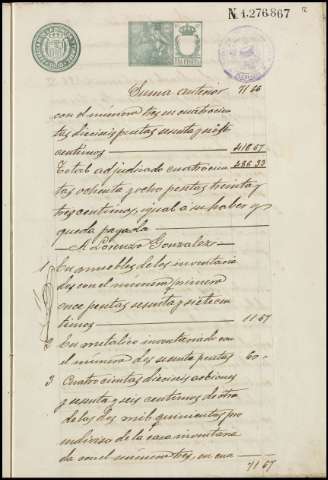 N. 1.276.867
12
Suma anterior 71 66
con el número tres en cuatrocien
tas dieciseis pesetas sesenta y siete
centimos 416 67
Total adjudicado cuatrocien 488 33
tas ochenta y ocho pesetas treinta y
tres centimos, igual á su haber y
queda pagada
A Lorenzo Gonzalez
1 En muebles de los inventaria
dos con el número primero
once pesetas sesenta y siete cen
timos 11 67
2 En metálico inventariado con
el número dos sesenta pesetas 60
3 Cuatrocientas dieciseis acciones
y sesenta y seis centimos de otra
de las dos mil quinientas pro
indiviso de la casa inventaria
da con el número tres, en cua
71 67